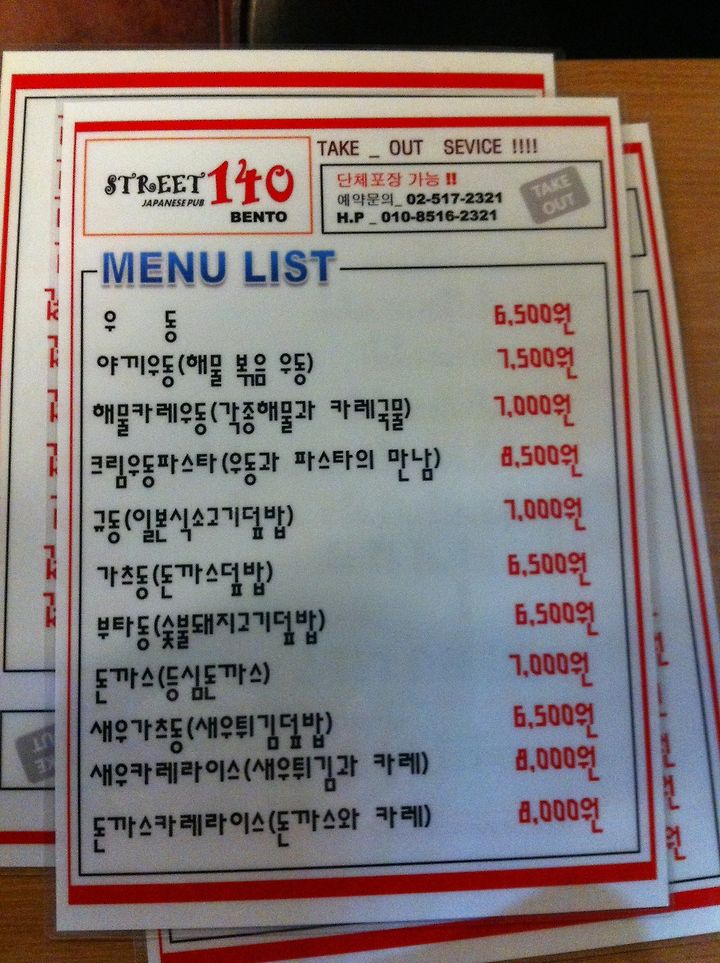 TAKE _ OUT SEVICE !!!!
STREET 140
JAPANESE PUB
BENTO
단체포장 가능 !!
예약문의_ 02-517-2321
H.P _ 010-8516-2321
TAKE OUT
MENU LIST
우 동 6,500원
야끼우동(해물 볶음 우동) 7,500원
해물카레우동(각종해물과 카레국물) 7,000원
크림우동파스타(우동과 파스타의 만남) 8,500원
규동(일본식소고기덮밥) 7,000원
가츠동(돈까스덮밥) 6,500원
부타동(숯불돼지고기덮밥) 6,500원
돈까스(등심돈까스) 7,000원
새우가츠동(새우튀김덮밥) 6,500원
새우카레라이스(새우튀김과 카레) 8,000원
돈까스카레라이스(돈까스와 카레) 8,000원
TAKE OUT